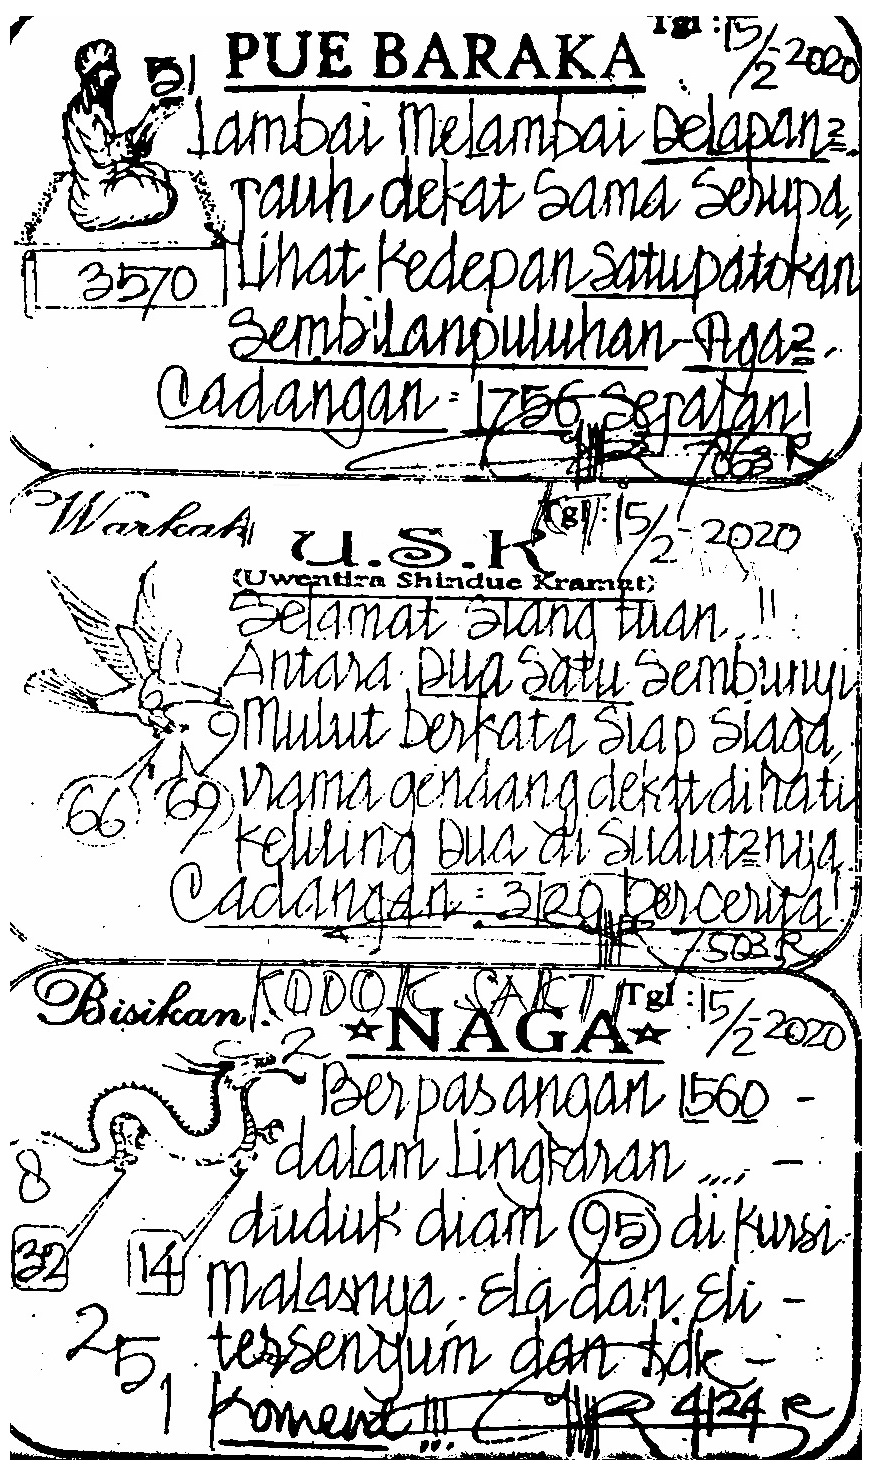 Tgl : 15/2-2020
PUE BARAKA
51
Lambai Melambai Delapan2.
Jauh dekat Sama Serupa,
Lihat Kedepan Satu patokan
3570
Sembilanpuluhan-Aga2.
Cadangan : 1756 Sepatan!
7063 R
Warkah
Tgl : 15/2-2020
U.S.K
(Uwentira Shindue Kramat)
Selamat Siang tuan...!!
Antara Dua Satu Sembunyi
6 9
Mulut berkata Siap Siaga,
66 69
Irama gendang dekat dihati
Keliling Dua di Sudut2nya
Cadangan : 3120 bercerita!
1503 R
Bisikan KODOK SAKTI Tgl : 15/2-2020
NAGA
2
Berpasangan 1560 -
dalam Lingkaran .... -
8
duduk diam 95 di kursi
32 14
Malasnya. Ela dan Eli -
2
tersenyum dan tdk -
5
1
Koment !!!
4124 R